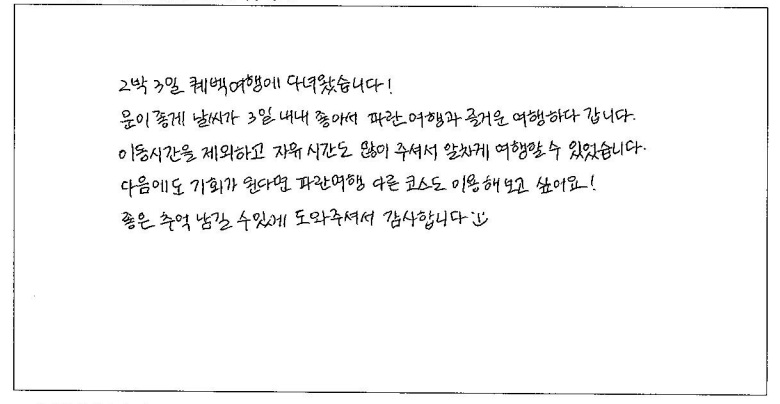 2박 3일 퀘벡여행에 다녀왔습니다!
운이 좋게 날씨가 3일 내내 좋아서 파란 여행과 즐거운 여행하다 갑니다.
이동시간을 제외하고 자유 시간도 많이 주셔서 알차게 여행할 수 있었습니다.
다음에도 기회가 된다면 파란여행 다른 코스도 이용해보고 싶어요!
좋은 추억 남길 수있게 도와주셔서 감사합니다